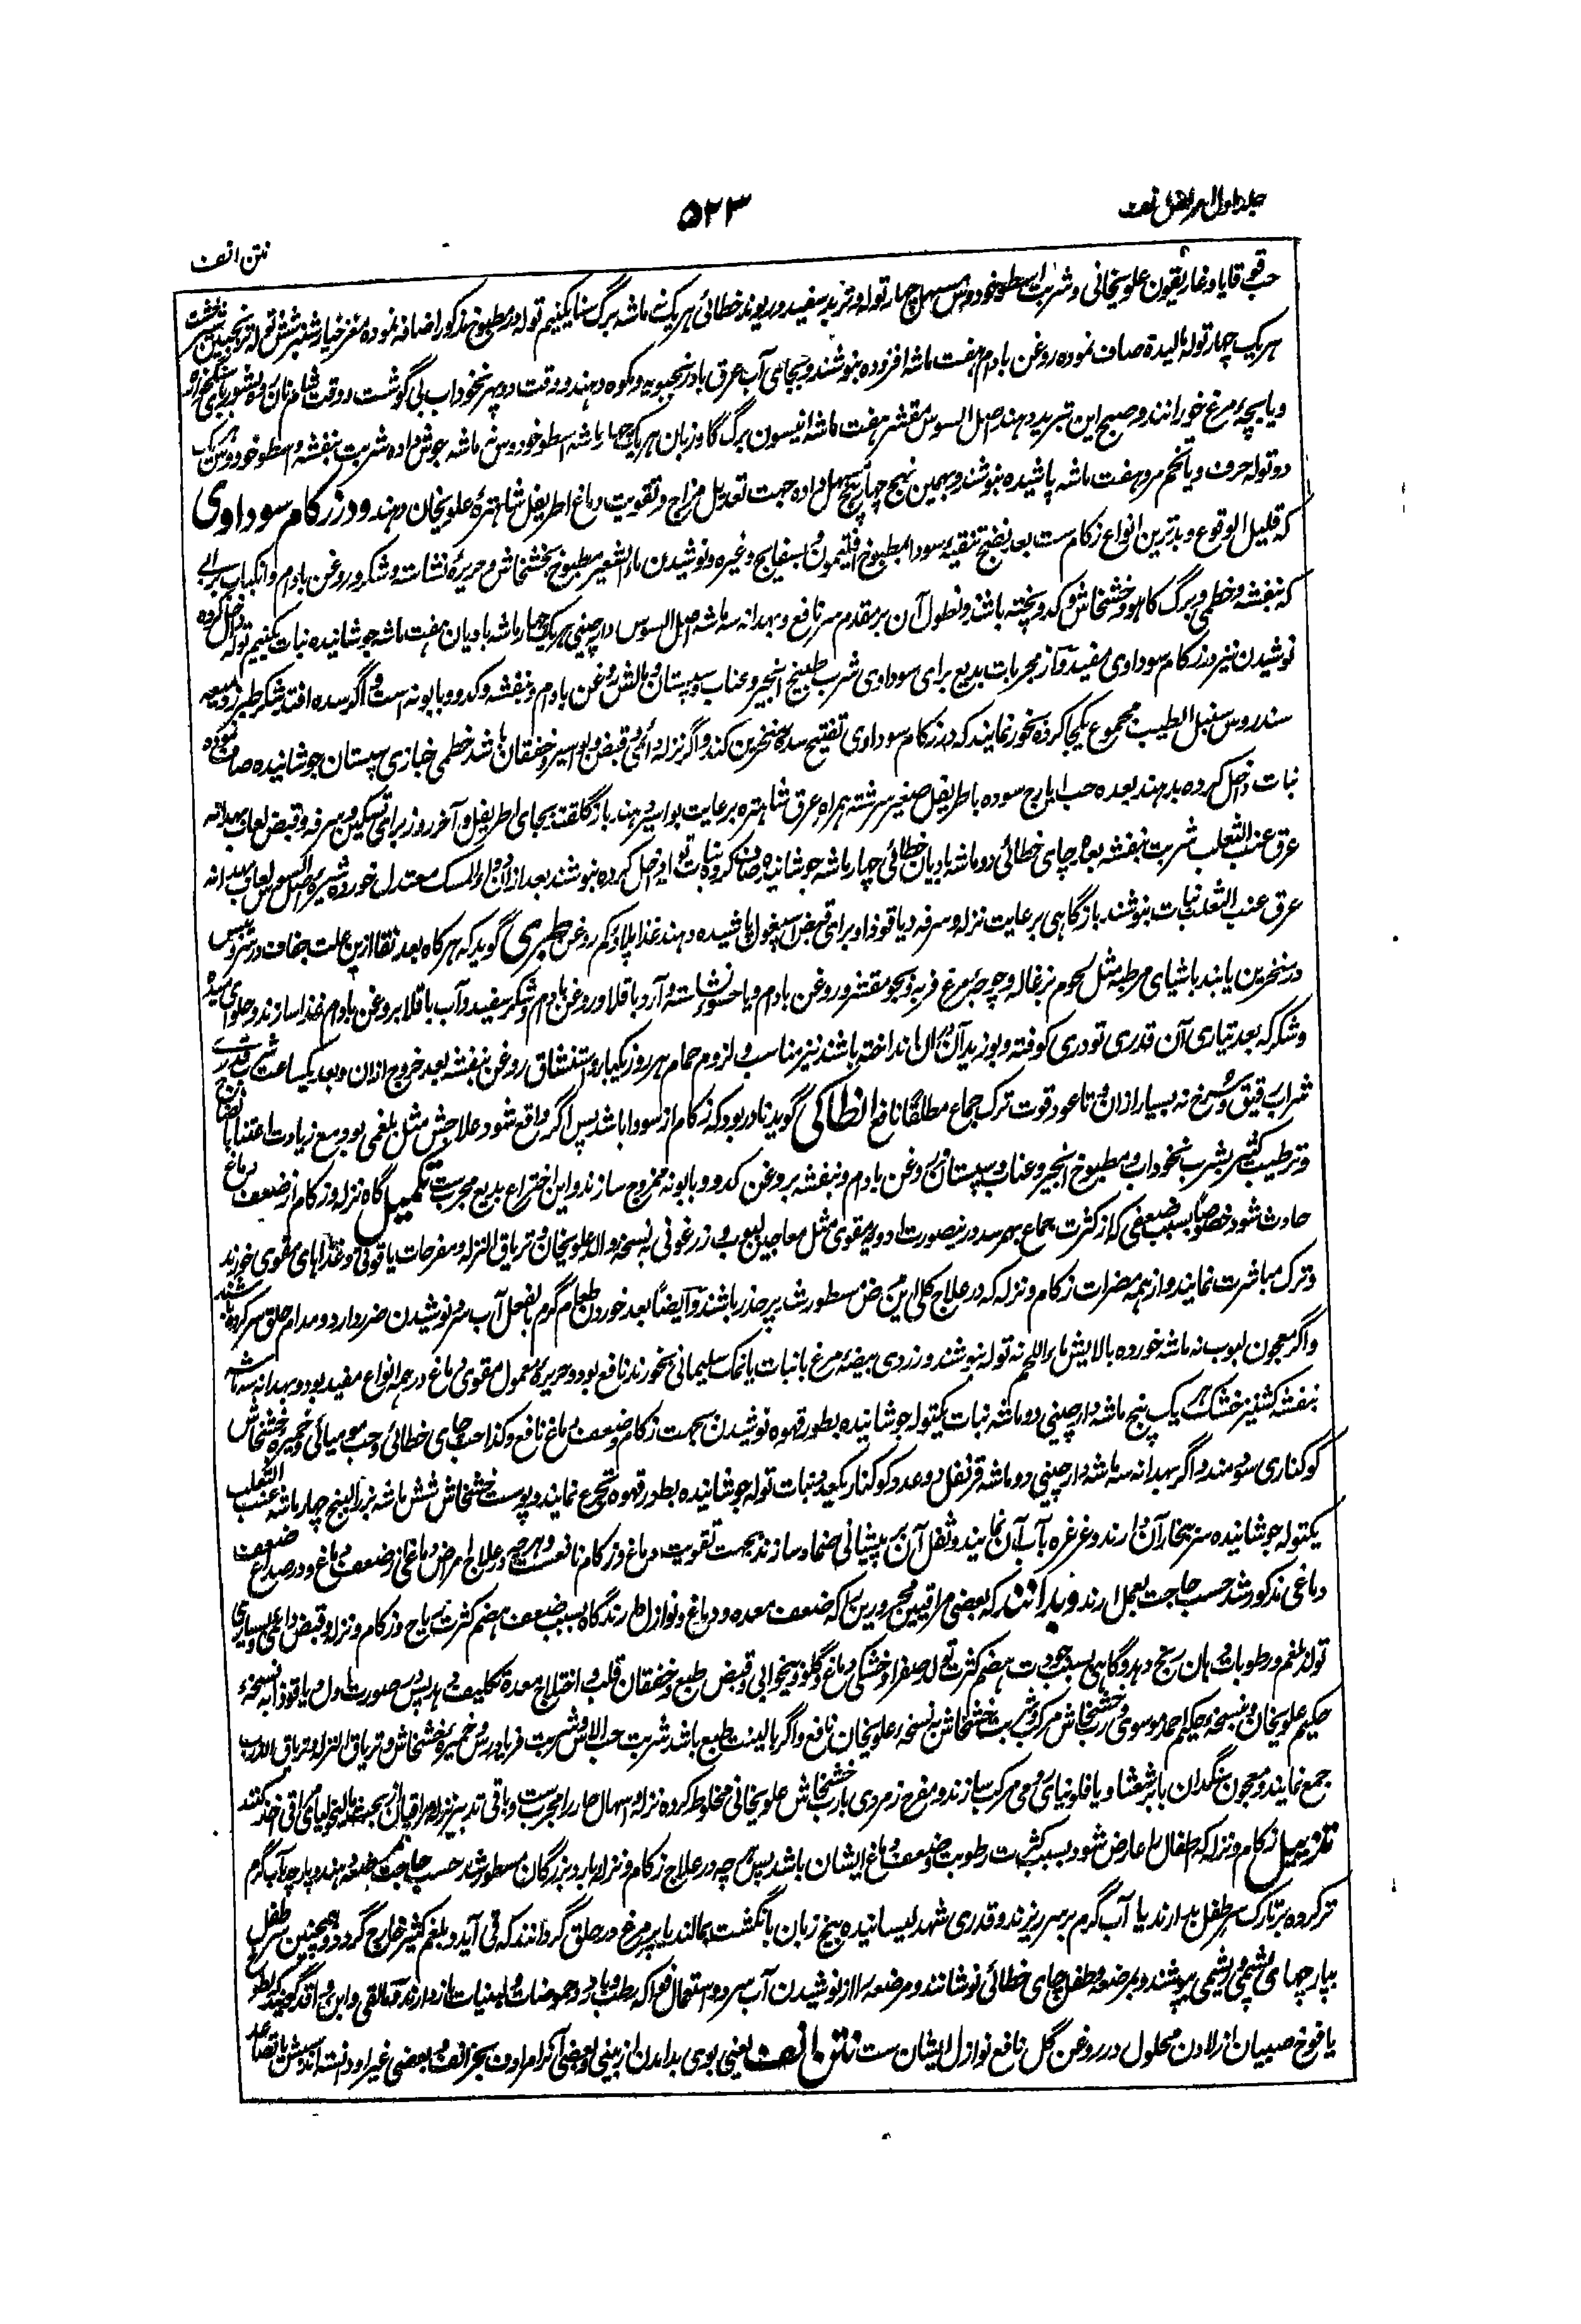 جلد اول امراض انف
۵۲۳
نتن انف
حب قوقایا و غاریقون علویخانی و شربت اسطوخودوس مسهل چهار توله و تربد سفید و ریوند خطائی هر یک نه ماشه برگ سنا یکنیم توله در مطبوخ مذکور اضافه نموده مغز خیارشنبر شش توله ترنجبین شیرخشت
هر یک چهار توله مالیده صاف نموده روغن بادام هفت ماشه افزوده بنوشند و بجای آب عرق بادرنجبویه و مکوه دهند و وقت دوپهر نخوداب بی گوشت و وقت شام نان و شوربای
و یا بچه مرغ خورانند و صبح این تبرید دهند اصل السوس مقشر هفت ماشه انیسون برگ گاوزبان هر یک چهار ماشه اسطوخودوس نه ماشه جوش داده شربت بنفشه و اسطوخودوس هر یک
دو توله حرف و یا تخم مرو هفت ماشه پاشیده بنوشند و بهمین نهج چهار پنج مسهل داده جهت تعدیل مزاج و تقویت دماغ اطریفل شاهتره علویخان دهند و در زکام سوداوی
که قلیل الوقوع و بدترین انواع زکام ست بعد نضج تنقیه سودا بمطبوخ افتیمون و بسفایج و غیره و نوشیدن ماء الشعیر مطبوخ بخشخاش و حریره نشاسته و شکر و روغن بادام و انکباب بر آبی
که بنفشه و خطمی و برگ کاهو و خشخاش و کدو پخته باشند و نطول آن بر مقدم سر نافع و بهدانه سه ماشه اصل السوس دارچینی هر یک چهار ماشه بادیان هفت ماشه جوشانیده نبات یکنیم توله داخل کرده
نوشیدن نیز در زکام سوداوی مفید و از مجربات بدیع برای سوداوی شرب طبیخ انجیر و عناب و سپستان و مالش روغن بادام و بنفشه و کدو و بابونه است و اگر سده افتد شکر طبرزد و میعه
سندروس سنبل الطیب مجموع یکجا کرده بخور نمایند که در زکام سوداوی تفتیح سده منخرین کند و اگر نزله دائمی و قبض و بواسیر و خفقان باشد خطمی خبازی سپستان جوشانیده صاف نموده
نبات داخل کرده بدهند بعده حب ایارج سوده باطریفل صغیر سرشته همراه عرق شاهتره برعایت بواسیر دهند باز گلقند بجای اطریفل و آخر روز برای تسکین سرفه و قبض لعاب بهدانه
عرق عنب الثعلب شربت بنفشه بعده چای خطائی دو ماشه بادیان خطائی چهار ماشه جوشانیده صاف کرده نبات توله داخل کرده بنوشند بعد ازان دواء المسک معتدل خورده شیره اصل السوس لعاب بهدانه
عرق عنب الثعلب نبات بنوشند باز گاهی برعایت نزله و سرفه دیاقوذا و برای قبض اسپغول پاشیده دهند غذا پلاو کم روغن طبری گوید که هرگاه بعد نقا ازین علت جفاف در سر و یبس
در منخرین یابند باشیای مرطبه مثل لحوم بزغاله و چوجه مرغ فربه و بجو مقشر و روغن بادام و یا حسو نشاسته و آرد باقلا و روغن بادام و شکر سفید و آب باقلا بروغن بادام غذا سازند و حلوای میده
و شکر که بعد تیاری آن قدری تودری کوفته و بوزیدان دران انداخته باشند نیز مناسب و لزوم حمام هر روز یکبار و استنشاق روغن بنفشه بعد خروج ازان و بعد یکساعت شرب قدری
شراب رقیق و ممزج نه بسیار ازان تا عود قوت ترک جماع مطلقا نافع انطاکی گوید نادر بود که زکام از سودا باشد پس اگر واقع شود علاجش مثل بلغمی بود مع زیادت اعتنا بانضاج
و ترطیب کثیر بشرب نخوداب و مطبوخ انجیر و عناب و سپستان و روغن بادام و بنفشه بروغن کدو و بابونه ممزوج سازند و این اختراع بدیع مجرب ست تکمیل گاه نزله و زکام از ضعف دماغ
حادث شود خصوصا بسبب ضعفی که از کثرت جماع بهم رسد درینصورت ادویه مقوی مثل معاجین لبوب و زرعونی به نسخه والد علویخان و تریاق النزله و مفرحات یاقوتی و غذاهای مقوی خورند
و ترک مباشرت نمایند و از همه مضرات زکام و نزله که در علاج کلی این مرض مسطور شد پرحذر باشند و ایضا بعد خوردن طعام گرم بالفعل آب سرد نوشیدن ضرر دارد و مدام حلق سر کرده باشند
و اگر معجون لبوب نه ماشه خورده بالایش ماء اللحم نه توله بنوشند و زردی بیضه مرغ با نبات یا نمک سلیمانی بخورند نافع بود و حریره معمول مقوی دماغ در جمله انواع مفید بود و بهدانه سه ماشه
بنفشه کشنیز خشک هر یک پنج ماشه دارچینی دو ماشه نبات یکتوله جوشانیده بطور قهوه نوشیدن بجهت زکام و ضعف دماغ نافع و کذا حب چای خطائی و حب مومیائی و خمیره خشخاش
کوکناری سودمند و اگر بهدانه سه ماشه دارچینی دو ماشه قرنفل دو عدد کوکنار یکعدد نبات توله جوشانیده بطور قهوه تجرع نمایند و پوست خشخاش شش ماشه بزر البنج چهار ماشه عنب الثعلب
یکتوله جوشانیده سر ببخار آن دارند و غرغره بآب آن نمایند و ثفل آن بر پیشانی ضماد سازند بجهت تقویت دماغ و زکام نافعست و هرچه در علاج امراض دماغی از ضعف دماغ و در صداع ضعف
دماغی مذکور شد حسب حاجت بعمل آرند و بدانند که بعضی مراقیین محرورین را که ضعف معده و دماغ و نوازل دارند گاه بسبب ضعف هضم کثرت ریاح و زکام و نزله و قبض دائمی و بسیاری
تولد بلغم و رطوبات دهان رنج دهد و گاهی بسبب جودت هضم کثرت تولد صفرا و خشکی دماغ و گلو و بیخوابی و قبض طبع و خفقان قلب و اختلاج معده تکلیف دهد پس در صورت اول دیاقوذا به نسخه
حکیم علویخان و نسخه حکیم احمد موسوی و رب خشخاش مرکب و شربت خشخاش به نسخه علویخان نافع و اگر بالینت طبع باشد شربت حب الآس و شربت فریادرس و خمیره خشخاش و تریاق النزله و تریاق
جمع نمایند و معجون سنگدان با برشعشا و یا فلونیای رومی مرکب سازند و مفرح زمردی با رب خشخاش علویخانی مخلوط کرده نزله و اسهال حار را مجرب ست و باقی تدبیر نزله مراقیان از بحث مالیخولیای مراقی اخذ کنند
تذییل زکام و نزله که اطفال را عارض شود بسبب کثرت رطوبت و ضعف دماغ ایشان باشد پس هرچه در علاج زکام و نزله بارد بزرگان مسطور شد حسب حاجت بمرضعه دهند و پارچه بآب گرم
تر کرده بر تارک سر طفل بدارند یا آب گرم بر سر ریزند و قدری شهد لیسانیده بیخ زبان بانگشت بمالند یا پر مرغ در حلق گردانند که قی آید و بلغم کثیر خارج گردد و همچنین سر طفل
بپارچهای پشمی و ریشمی بپوشند و بمرضعه و طفل چای خطائی نوشانند و مرضعه را از نوشیدن آب سرد و استعمال فواکه رطب و بارد و حموضات و لبنیات باز دارند انطاکی و ابن گویند که نطو
یافوخ صبیان از لادن محلول در روغن گل نافع نوازل ایشان ست نتن الانف یعنی بوی بد آمدن از بینی و بعضی آنرا مرادف بخر الانف و بعضی غیر او دانسته اند سببش یا تصاعد